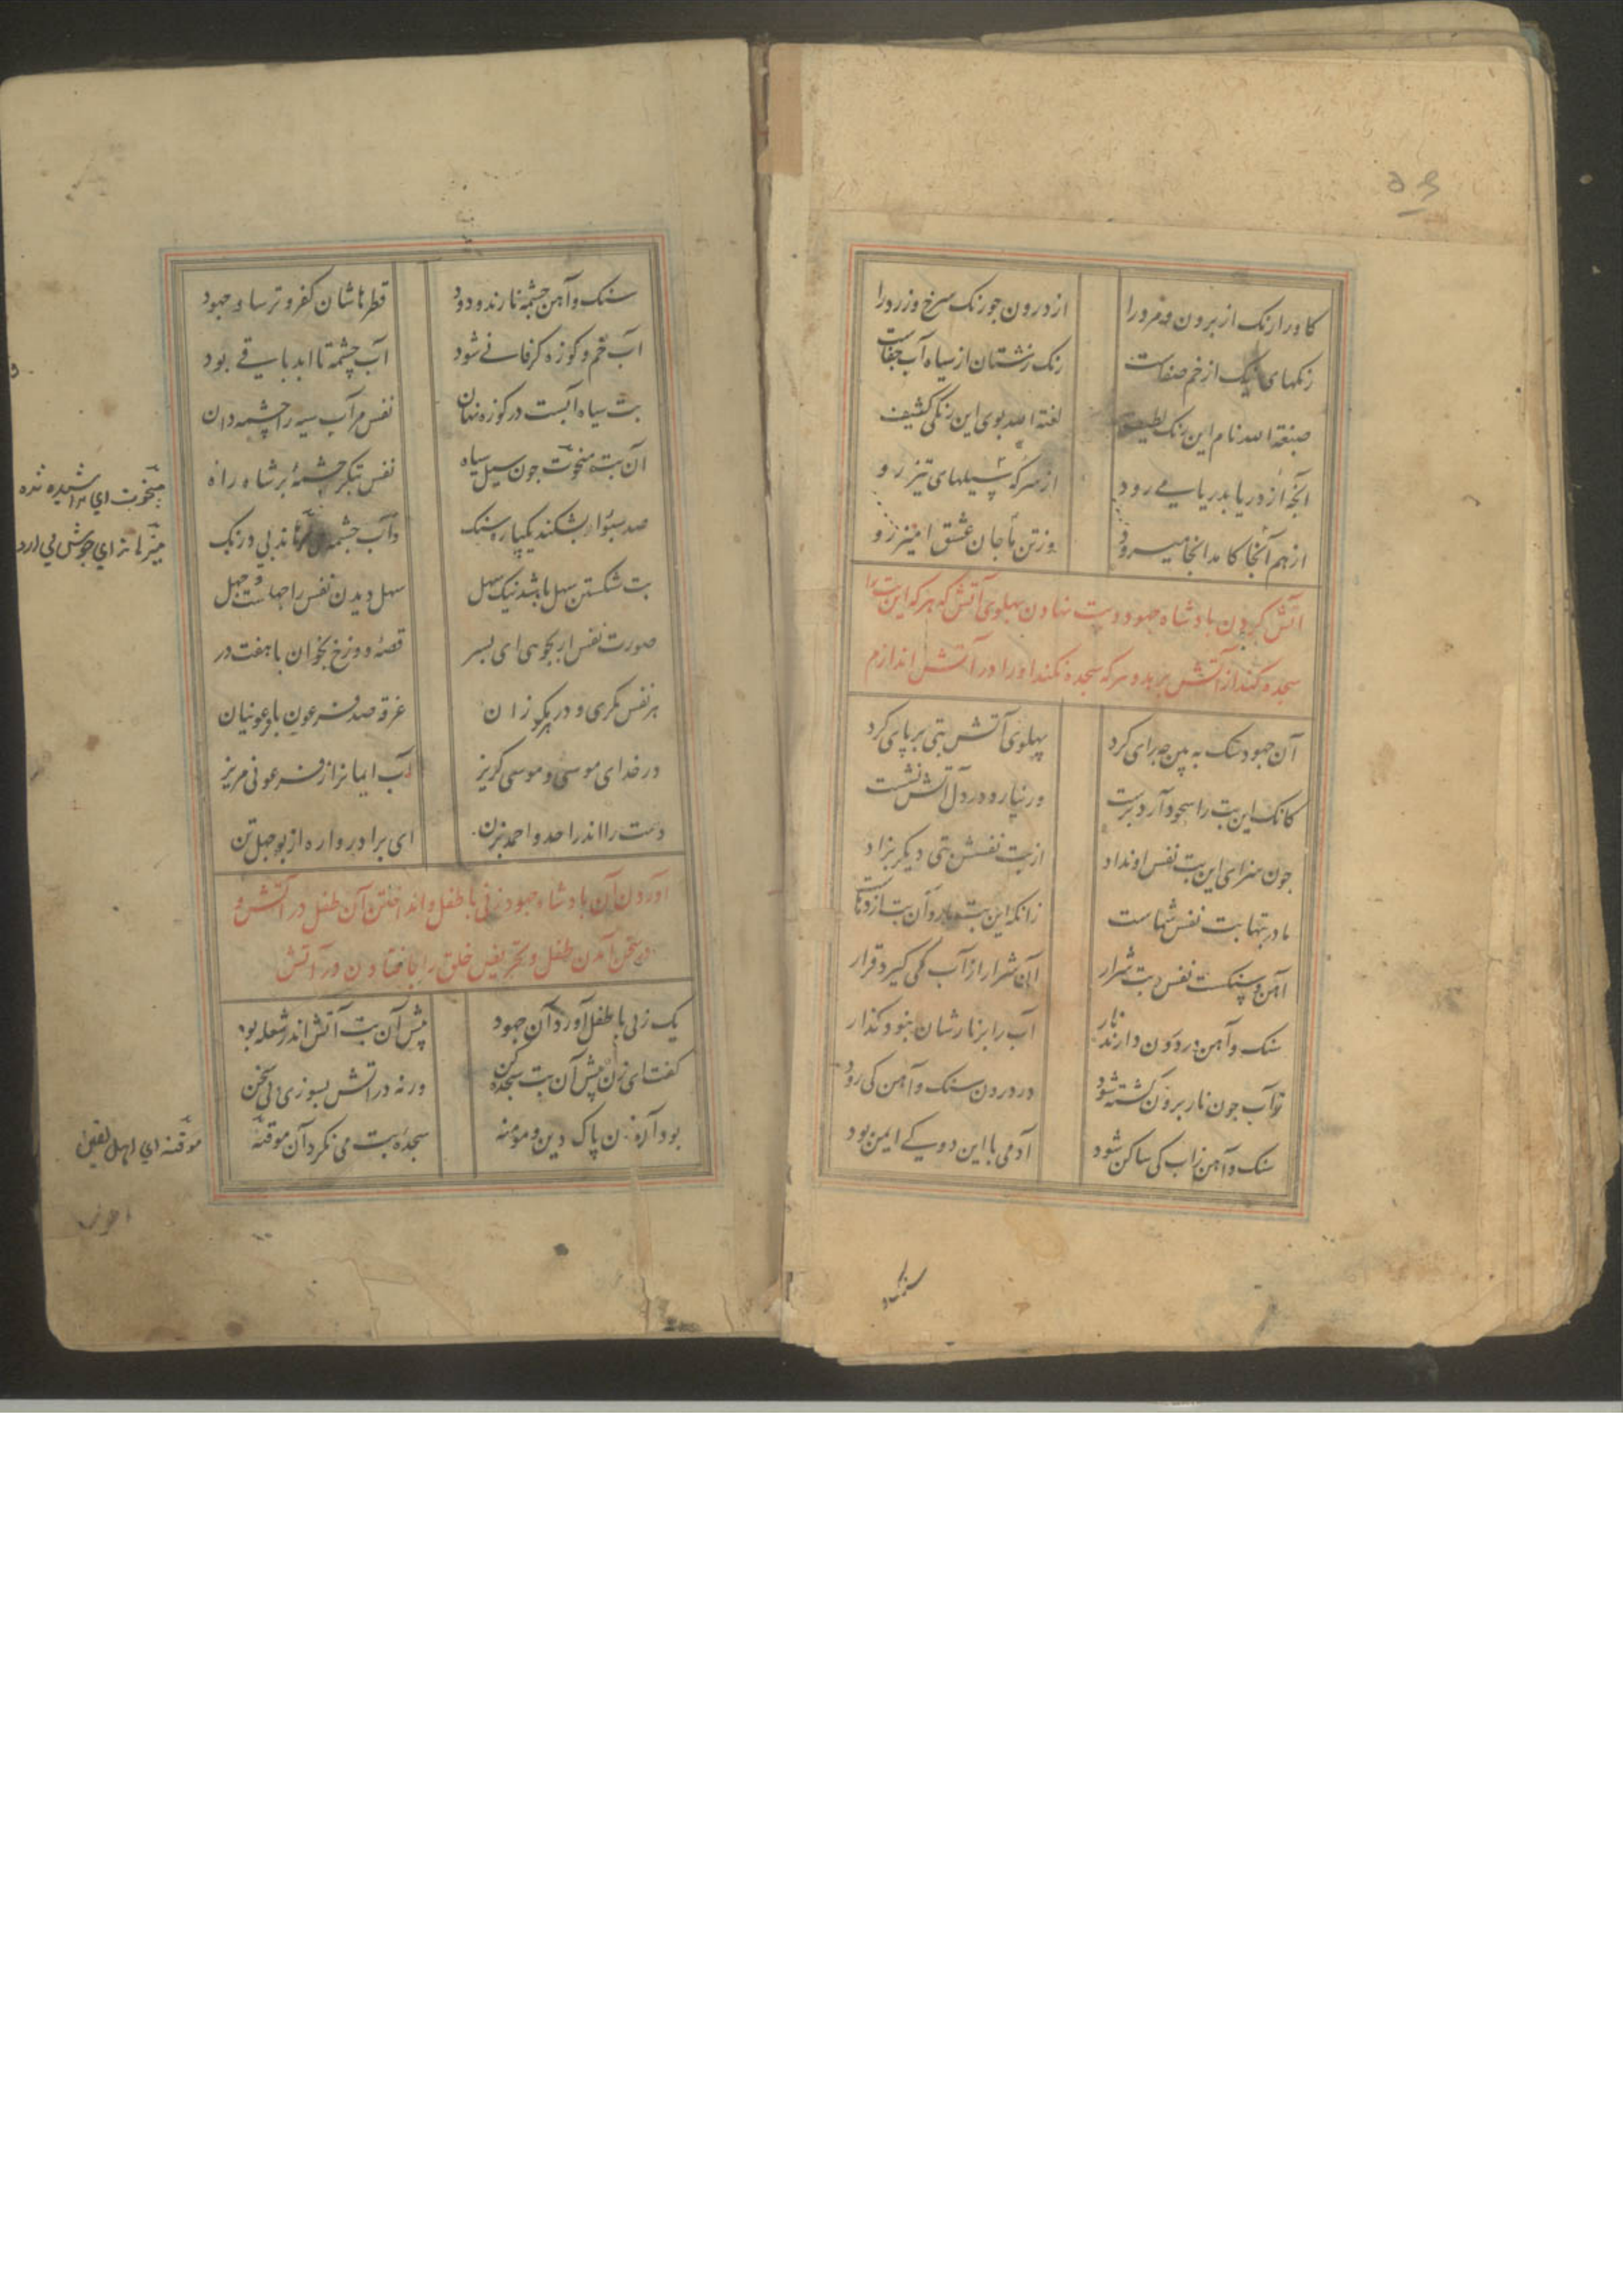 کاو را رنک از برون و مرد را از درون جو رنک سرخ و زرد را
رنکهای نیک از خم صفاست رنک زشتان از سیاه آب جفاست
صبغة الله نام این رنک لطیف لعنة الله بوی این رنک کثیف
انجه از دریا بدریا می رود
از همانجا کامد انجا میرود
از سر که سیلهای تیز رو
وز تن ما جان عشق آمیز رو
آتش کردن بادشاه جهود و بت نهادن پهلوی آتش که هر که این بت را
سجده کند از آتش برهد و هر که سجده نکند او را در آتش اندازم
آن جهود سک به بین چه رای کرد پهلوی آتش بتی بر پای کرد
کانک این بت را سجود آرد برست ور نیارد در دل آتش نشست
چون سزای این بت نفس او نداد از بت نفسش بتی دیکر بزاد
مادر بتها بت نفس شماست زانکه این بت مار و آن بت اژدهاست
آهن و سنکست نفس و بت شرار آن شرار از آب می کیرد قرار
سنک و آهن در درون دارند نار آب را بر نارشان نبود کذار
ز آب جون نار برون کشته شود در درون سنک و آهن کی رود
سنک و آهن زاب کی ساکن شود آدمی با این دو کی ایمن بود
سنک و آهن چشمه نارند و دود قطرهاشان کفر و ترسا و جهود
آب خم و کوزه کر فانی شود آب چشمه تا ابد باقی بود
بت سیاه آبست در کوزه نهان نفس مر آب سیه را چشمه دان
آن بت منحوت جون سیل سیاه نفس بتکر چشمهٔ بر شاه راه
صد سبو را بشکند یکپاره سنک وآب چشمه می زهاند بی درنک
بت شکستن سهل باشد نیک سهل سهل دیدن نفس را جهلست جهل
صورت نفس ار بجوی ای بسر قصهٔ دوزخ بخوان با هفت در
هر نفس مکری و در هر مکر زان غرقه صد فرعون با فرعونیان
در خدای موسی و موسی کریز آب ایمانرا ز فرعونی مریز
دست را اندر احد و احمد بزن ای برادر واره از بوجهل تن
آوردن آن بادشاه جهود زنی با طفل و انداختن آن طفل در آتش و
در سخن آمدن طفل و تحریض خلق را بافتادن در آتش
یک زنی با طفل آورد آن جهود پیش آن بت آتش اندر شعله بود
کفت ای زن پیش آن بت سجده کن ورنه در آتش بسوزی بی سخن
بود آن زن پاک دین و مومنه سجدهٔ بت می نکرد آن موقنه
منحوت ای تراشیده شده
موقنه ای اهل یقین
سنک و